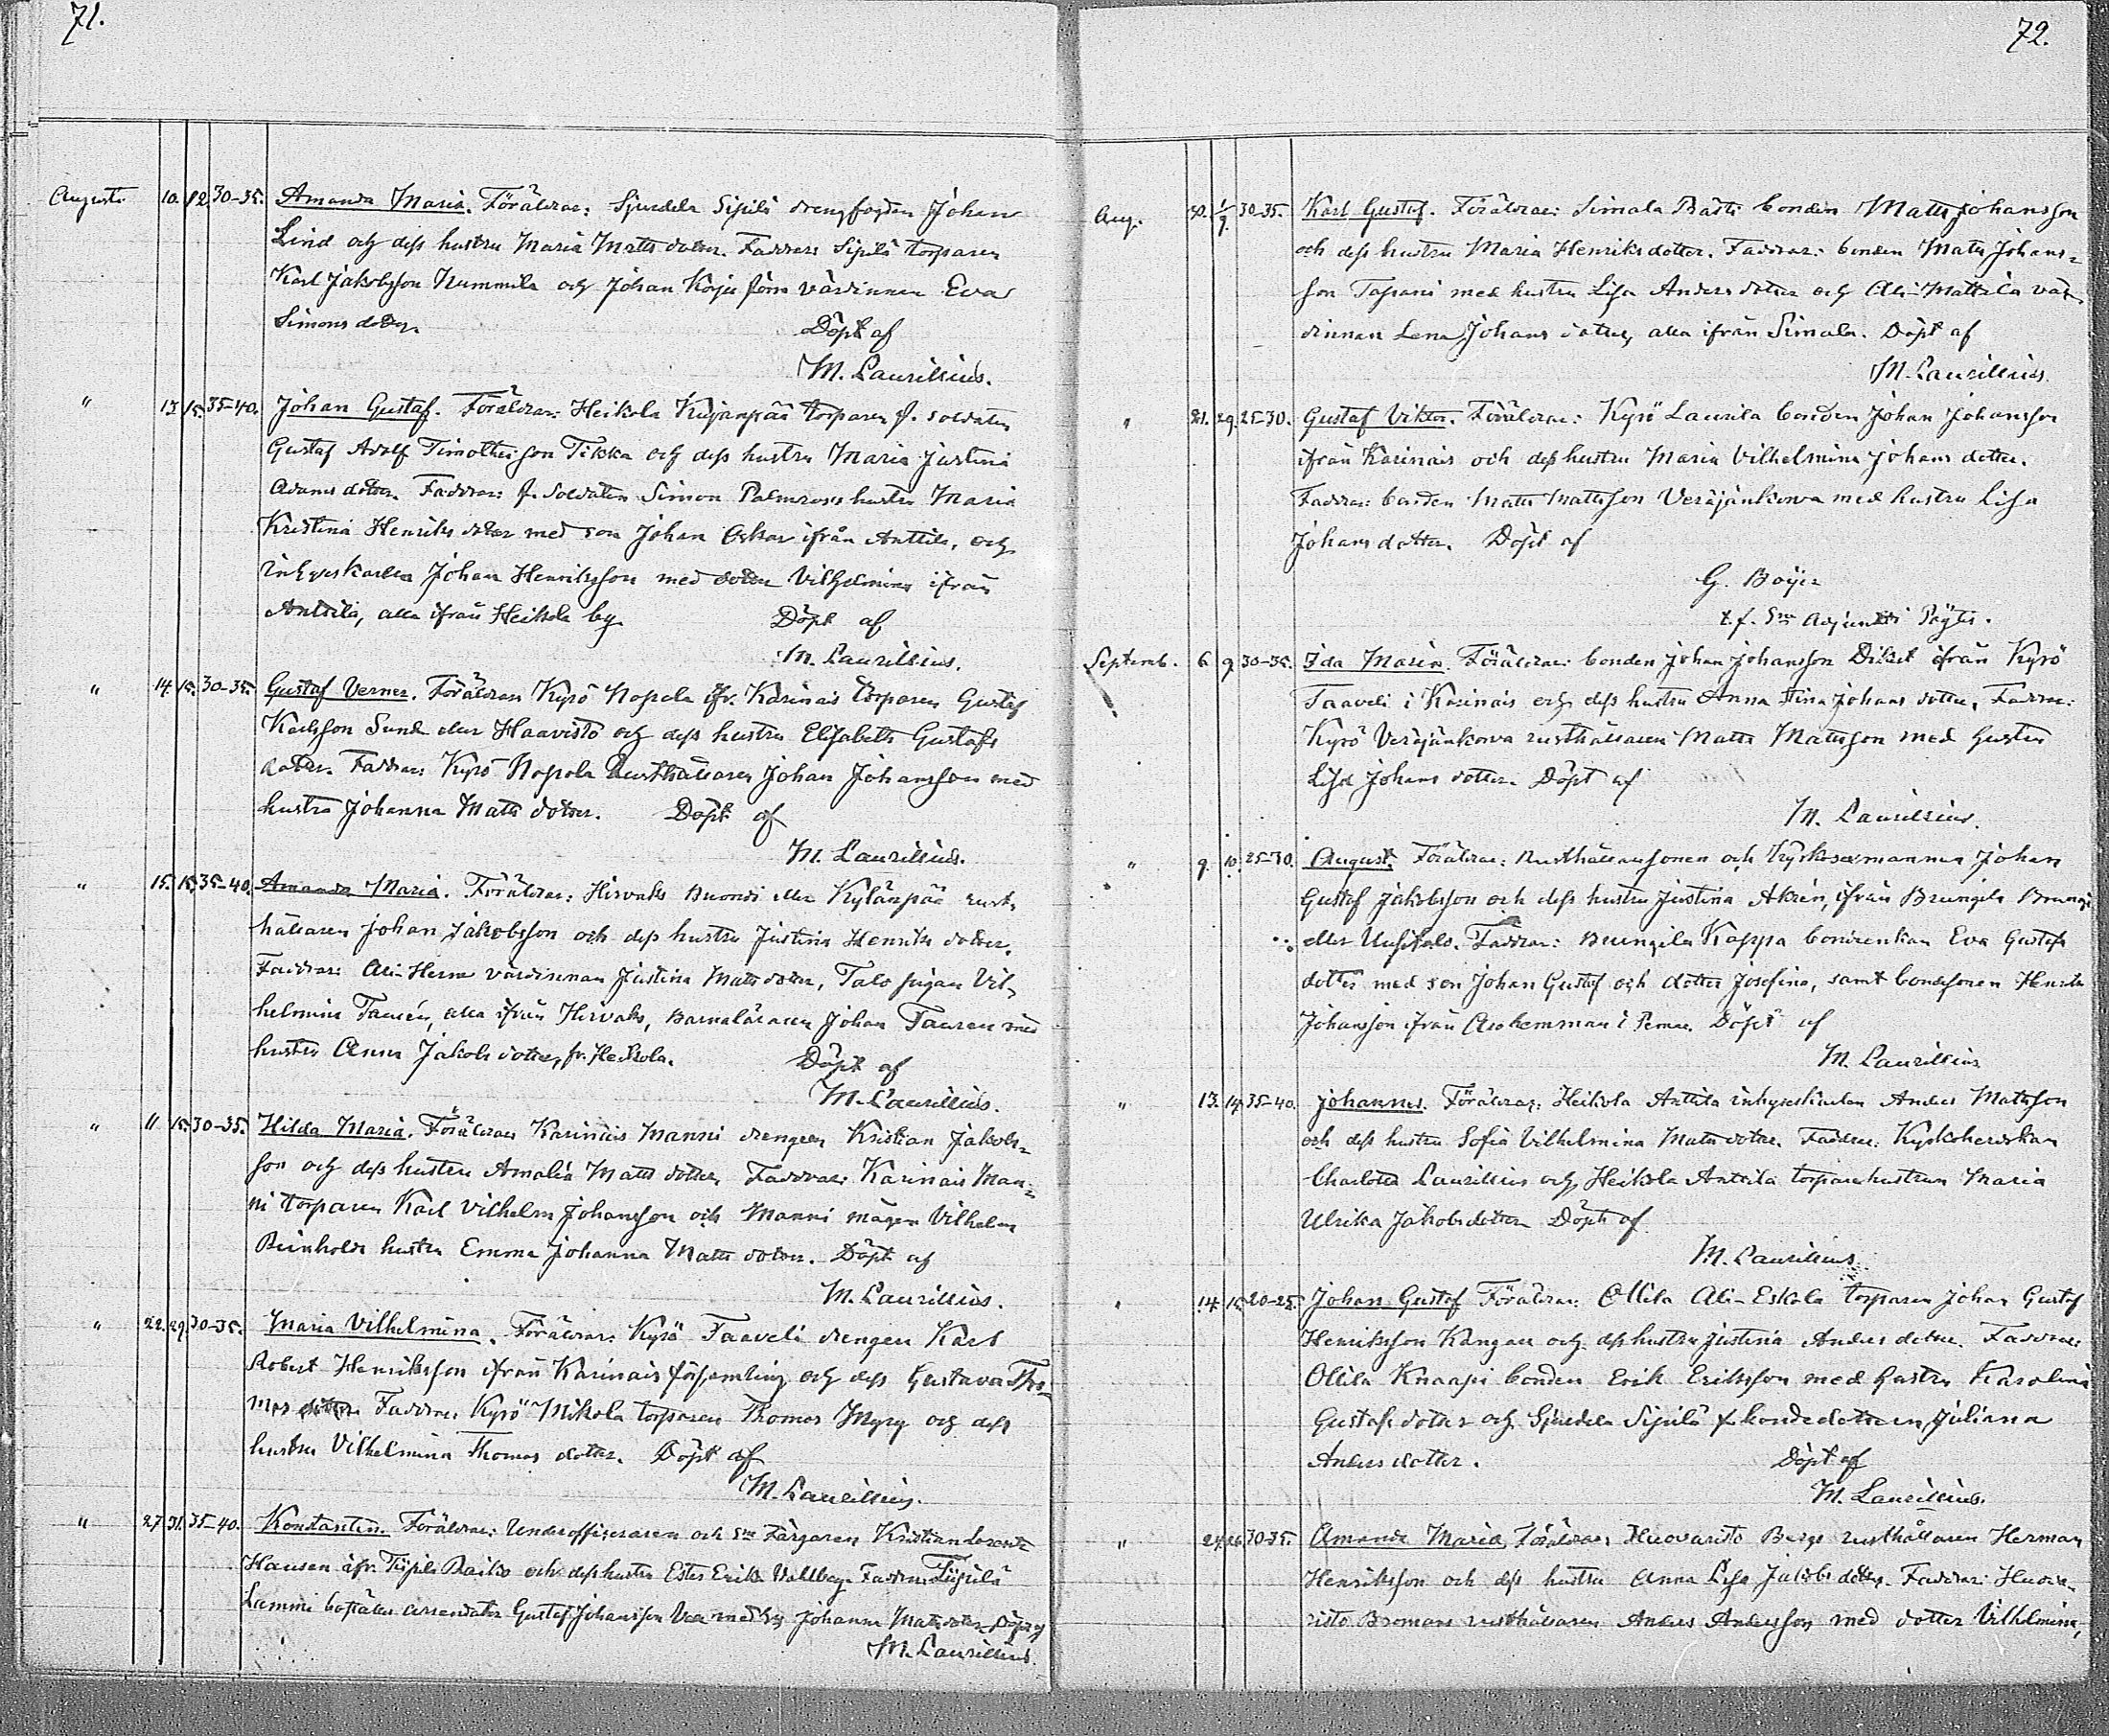 71.
Augusti 10. 12. 30-35. Amanda Maria. Föräldrar: Sjundela Sipilä drengfogden Johan
Lind och dess hustru Maria Matts dotter. Faddrar: Sipilä torparen
Karl Jakobsson Nummila och Johan Korpi förra värdinnan Eva
Simons dotter. Döpt af
M. Laurillius.
" 13. 15. 35-40. Johan Gustaf. Föräldrar: Heikola Kujanpää torparen f. soldaten
Gustaf Adolf Timotheisson Tikka och dess hustru Maria Justina
Adams dotter. Faddrar: f. soldaten Simon Palmroos hustru Maria
Kristina Henriks dotter med son Johan Oskar ifrån Anttila, och
inhyseskarlen Johan Henriksson med dotter Vilhelmina ifrån
Anttila, alla ifrån Heikola by. Döpt af
M. Laurillius.
" 14. 15. 30-35. Gustaf Verner. Föräldrar Kyrö Nopola ifr. Karinais torparen Gustaf
Karlsson Sund eller Haavisto och dess hustru Elisabeth Gustafs
dotter. Faddrar: Kyrö Nopola Rusthållaren Johan Johansson med
hustru Johanna Matts dotter. Döpt af
M. Laurillius.
" 15. 15. 35-40. Amanda Maria. Föräldrar: Hirvaks Buondi eller Kylänpää rust-
hållaren Johan Jakobsson och dess hustru Justina Henriks dotter.
Faddrar: Ali-Herra värdinnan Justina Matts dotter, Talo pigan Vil-
helmina Taurén, alla ifrån Hirvaks, Barnaläraren Johan Tauren med
hustru Anna Jakobs dotter, fr. Heikola. Döpt af
M. Laurillius.
" 11 15. 30-35. Hilda Maria. Föräldrar Karinais Manni drengen Kristian Jakobs-
son och dess hustru Amalia Matts dotter. Faddrar: Karinais Man-
ni torparen Karl Vilhelm Johansson och Manni mågen Vilhelm
Reinholds hustru Emma Johanna Matts dotter. Döpt af
M. Laurillius.
" 22. 29. 30-35. Maria Vilhelmina. Föräldrar: Kyrö Taaveli drengen Karl
Robert Henriksson ifrån Karinais församling och dess Gustava Tho-
mas dotter Faddrar: Kyrö Mikola torparen Thomas Myry och dess
hustru Vilhelmina Thomas dotter. Döpt af
M. Laurillius.
" 27. 31. 35-40. Konstantin. Föräldrar: Underofficeraren och Färgaren Kristian
Hansen ifr. Raiko och dess hustru Ester Erika Vallberg. Faddrar:
Lammi boställes arrendator Gustaf Johansson med h. Johanna Matts dotter. Döpt af
M. Laurillius.
72.
Aug. 30. 1/9. 30-35. Karl Gustaf. Föräldrar: Simala Bästi bonden Matts Johansson
och dess hustru Maria Henriksdotter. Faddrar: bonden Matts Johans-
son Tapani med hustru Lisa Anders dotter och Ali-Mattila vär-
dinnan Lena Johans dotter, alla ifrån Simala. Döpt af
M. Laurillius.
" 21. 29. 25-30. Gustaf Viktor. Föräldrar: Kyrö Laurila bonden Johan Johansson
ifrån Karinais och dess hustru Maria Vilhelmina Johans dotter.
Faddrar: bonden Matts Mattsson Veräjänkorva med hustru Lisa
Johans dotter. Döpt af
G. Boijer
t.f. Sm Adjunkt i Pöytis.
Septemb. 6. 9. 30-35. Ida Maria. Föräldrar: bonden Johan Johansson ifrån Kyrö
Taaveli i Karinais och dess hustru Anna Stina Johans dotter. Faddrar:
Kyrö Veräjänkorva rusthållaren Matts Mattsson med hustru
Lisa Johans dotter. Döpt af
M. Laurillius.
" 9. 10. 25-30. August. Föräldrar: Rusthållaresonen och Kyrkosexmannen Johan
Gustaf Jakobsson och dess hustru Justina Akrén, ifrån Brungila
eller Uusitalo. Faddrar: Brungila Kappa bondenkan Eva Gustafs
dotter med son Johan Gustaf och dotter Josefina, samt bondesonen Henrik
Johansson ifrån i Pemar. Döpt af
M. Laurillius
" 13. 14. 35-40. Johannes. Föräldrar: Heikola Anttila inhyseskarlen Anders Mattsson
och dess hustru Sofia Vilhelmina Matts dotter. Faddrar: Kyrkoherdskan
Charlotta Laurillius och Heikola Anttila torparehustrun Maria
Ulrika Jakobsdotter. Döpt af
M. Laurillius.
" 14. 15. 20-25. Johan Gustaf Föräldrar: Ollila Ali-Eskola torparen Johan Gustaf
Henriksson Kangas och dess hustru Justina Anders dotter. Faddrar:
Ollila Knaapi bonden Erik Eriksson med hustru Karolina
Gustafs dotter och Sjundela Sipilä f. bondedottern Juliana
Anders dotter. Döpt af
M. Laurillius.
" 24. 26. 30-35. Amanda Maria, Föräldrar: Huovaristo Bergs rusthållaren Herman
Henriksson och dess hustru Anna Lisa Jakobs dotter. Faddrar: Huova-
risto Bromans rusthållaren Anders Andersson med dotter Vilhelmina,